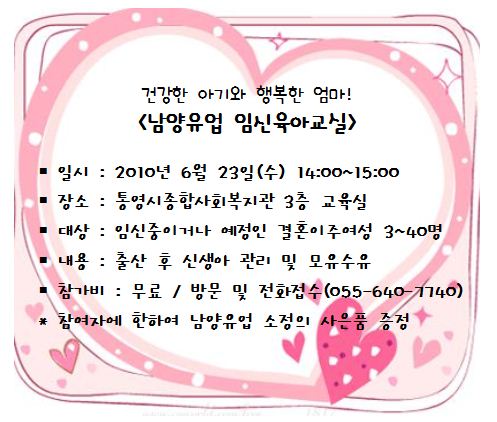 건강한 아기와 행복한 엄마!
<남양유업 임신육아교실>
▪ 일시 : 2010년 6월 23일(수) 14:00~15:00
▪ 장소 : 통영시종합사회복지관 3층 교육실
▪ 대상 : 임신중이거나 예정인 결혼이주여성 3~40명
▪ 내용 : 출산 후 신생아 관리 및 모유수유
▪ 참가비 : 무료 / 방문 및 전화접수(055-640-7740)
* 참여자에 한하여 남양유업 소정의 사은품 증정